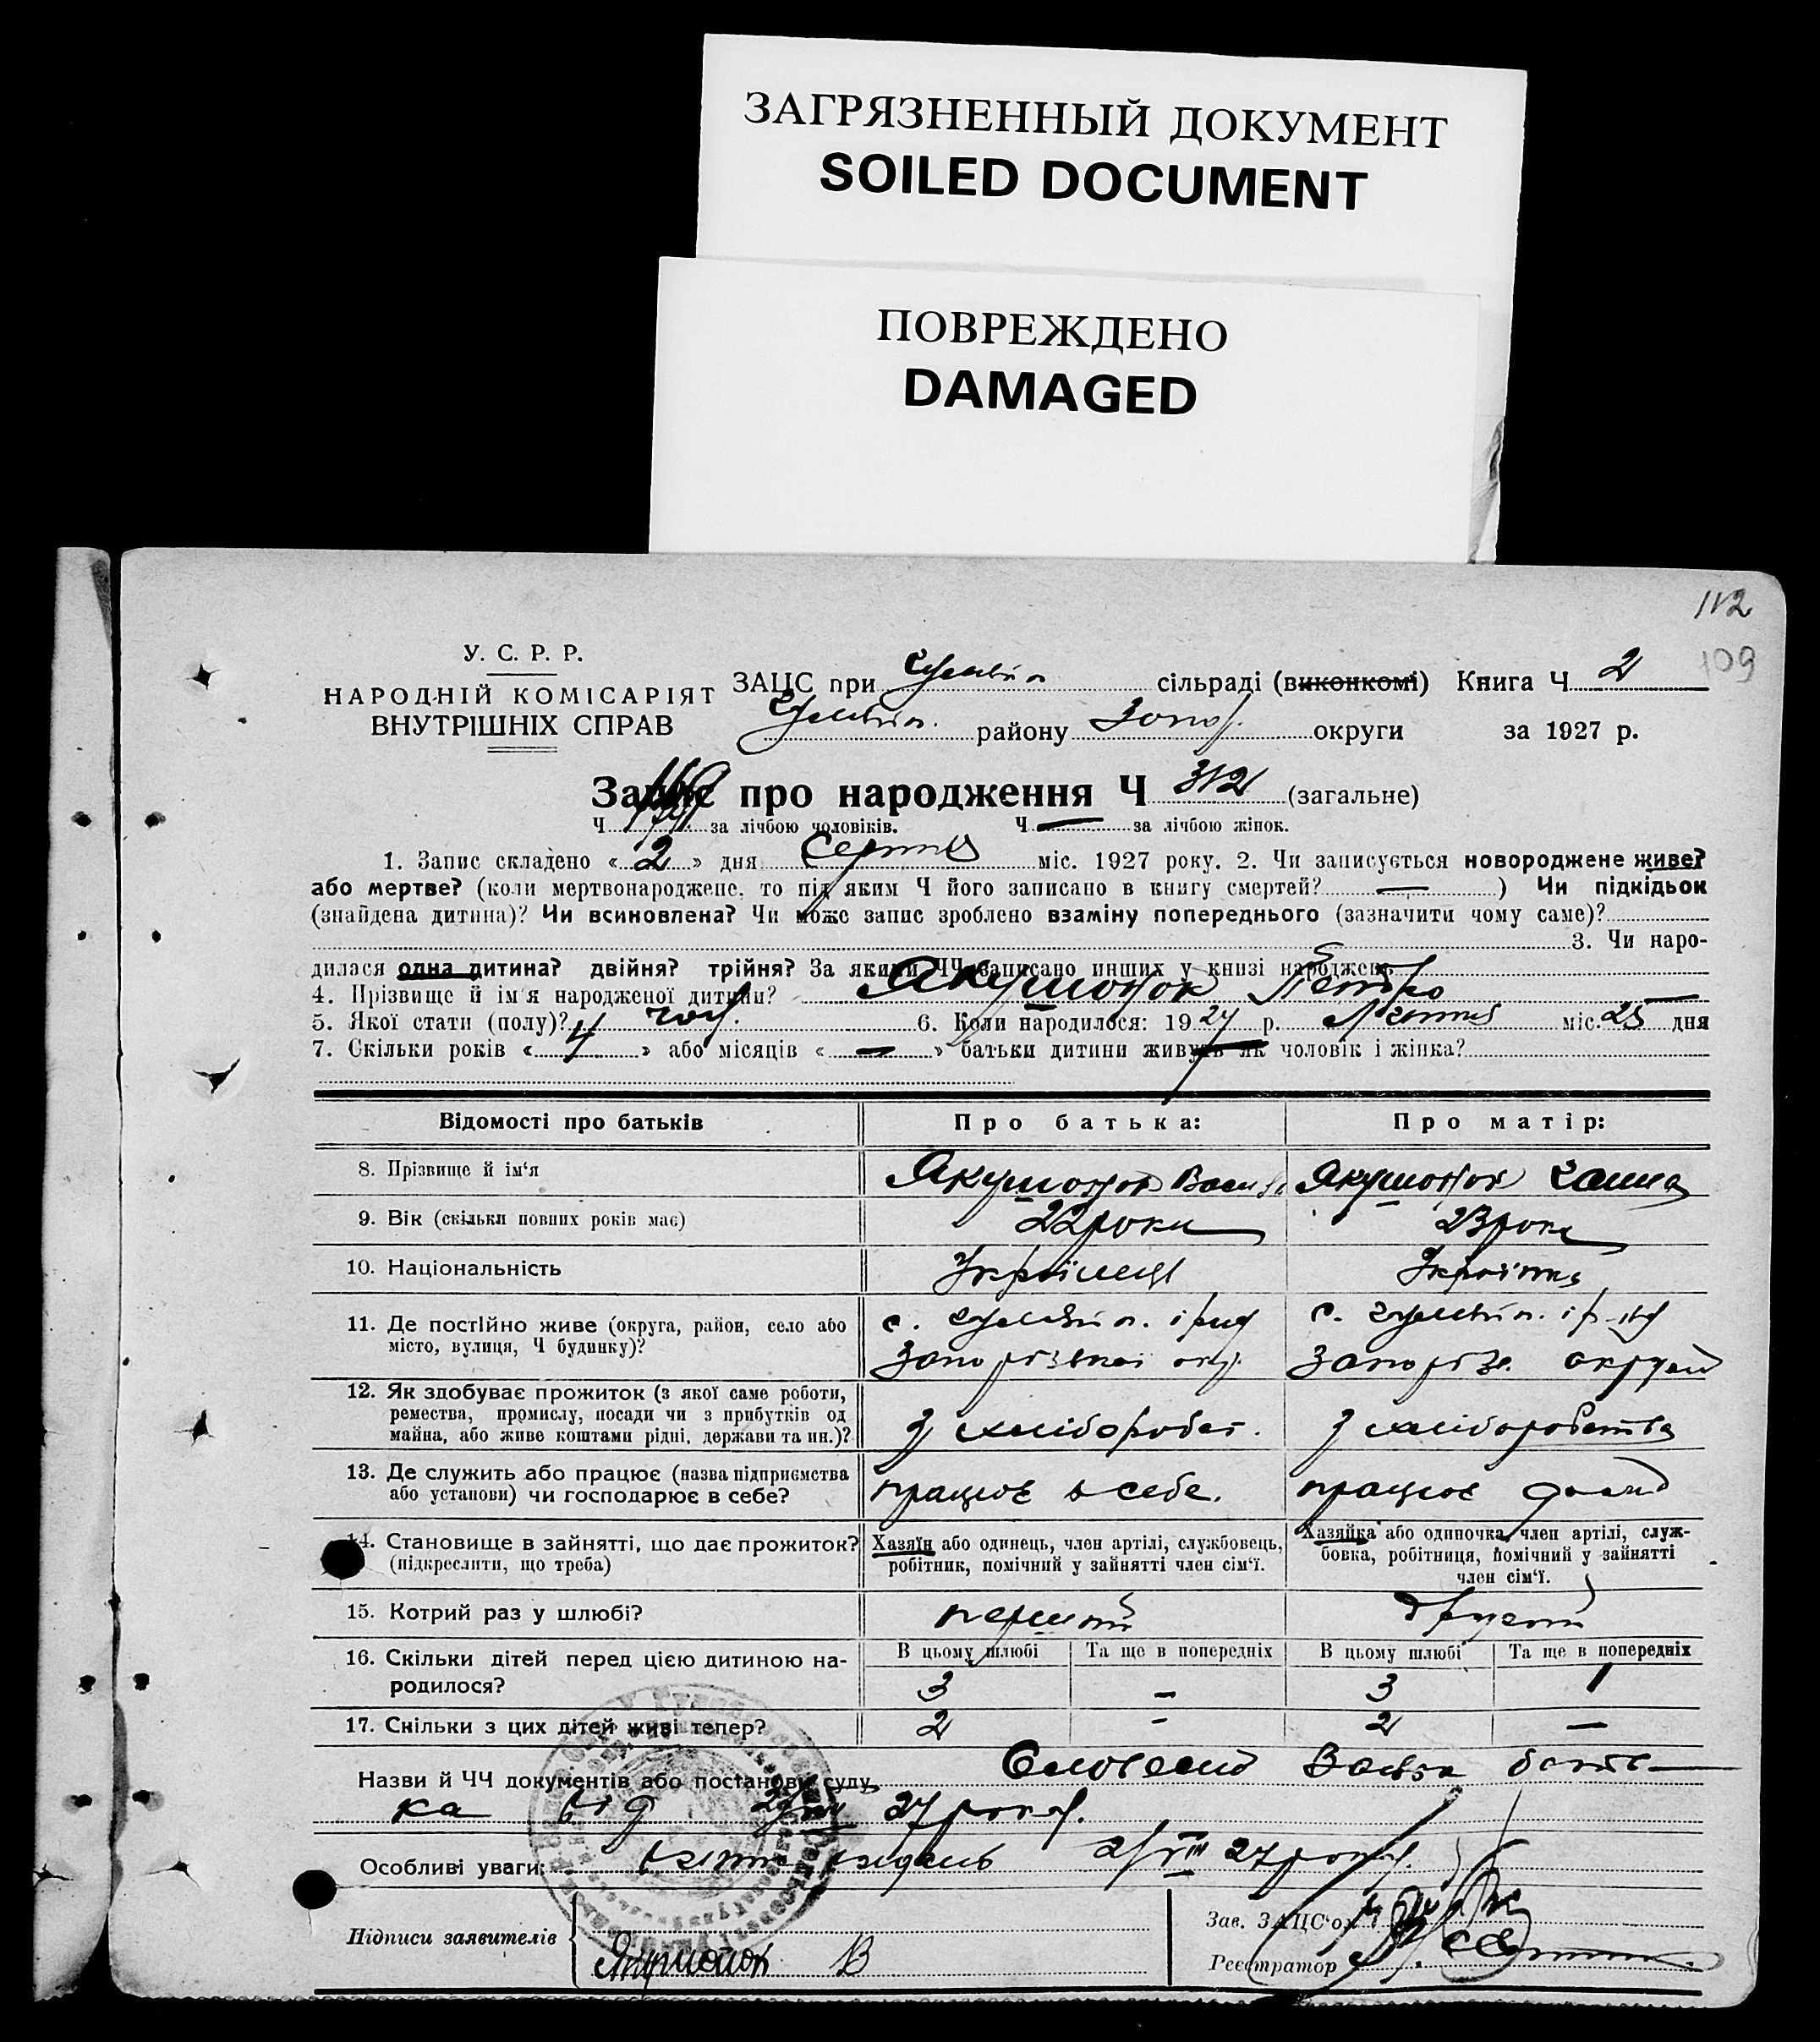 ЗАГРЯЗНЕННЫЙ ДОКУМЕНТ
SOILED DOCUMENT
ПОВРЕЖДЕНО
DAMAGED
112
109
У. С. Р. Р.
НАРОДНІЙ КОМІСАРІЯТ
ВНУТРІШНІХ СПРАВ
ЗАЦС при сільраді (виконкомі) Книга Ч 2
району Запор. округи за 1927 р.
Запис про народження Ч 312 (загальне)
Ч за лічбою чоловіків. Ч — за лічбою жінок.
1. Запис складено «2» дня Серпня міс. 1927 року. 2. Чи записується новороджене живе?
або мертве? (коли мертвонароджене, то під яким Ч його записано в книгу смертей? — ) Чи підкідьок
(знайдена дитина)? Чи всиновлена? Чи може запис зроблено взаміну попереднього (зазначити чому саме)?
3. Чи наро-
дилася одна дитина? двійня? трійня? За якими ЧЧ записано инших у книзі народжень
4. Прізвище й ім'я народженої дитини? Якушонок Петро
5. Якої стати (полу)? чол. 6. Коли народилося: 1927 р. Липня міс. 25 дня
7. Скільки років «4» або місяців «—» батьки дитини живуть як чоловік і жінка?
Відомості про батьків
Про батька:
Про матір:
8. Прізвище й ім'я
Якушонок Василь
Якушонок Ганна
9. Вік (скільки повних років має)
22 роки
23 роки
10. Національність
Українець
Українка
11. Де постійно живе (округа, район, село або
місто, вулиця, Ч будинку)?
с. і р-ну
Запорізької окр.
с. і р-ну
Запоріз. округи
12. Як здобуває прожиток (з якої саме роботи,
ремества, промислу, посади чи з прибутків од
майна, або живе коштами рідні, держави та ин.)?
З хлібороб.
З хліборобства
13. Де служить або працює (назва підприємства
або установи) чи господарює в себе?
працює в себе.
працює дома
14. Становище в зайнятті, що дає прожиток?
(підкреслити, що треба)
Хазяїн або одинець, член артілі, службовець,
робітник, помічний у зайнятті член сім'ї.
Хазяйка або одиночка, член артілі, служ-
бовка, робітниця, помічний у зайнятті
член сім'ї.
15. Котрий раз у шлюбі?
перший
другий
16. Скільки дітей перед цією дитиною на-
родилося?
В цьому шлюбі
Та ще в попередніх
В цьому шлюбі
Та ще в попередніх
3 – 3 1
17. Скільки з цих дітей живі тепер?
2 - 2 —
Назви й ЧЧ документів або постанову суду Словесна Заява бать-
ка від 27 року.
Особливі уваги: 2/VIII 27 року.
Підписи заявителів
Якушонок В
Зав. ЗАЦС'ом
Реєстратор